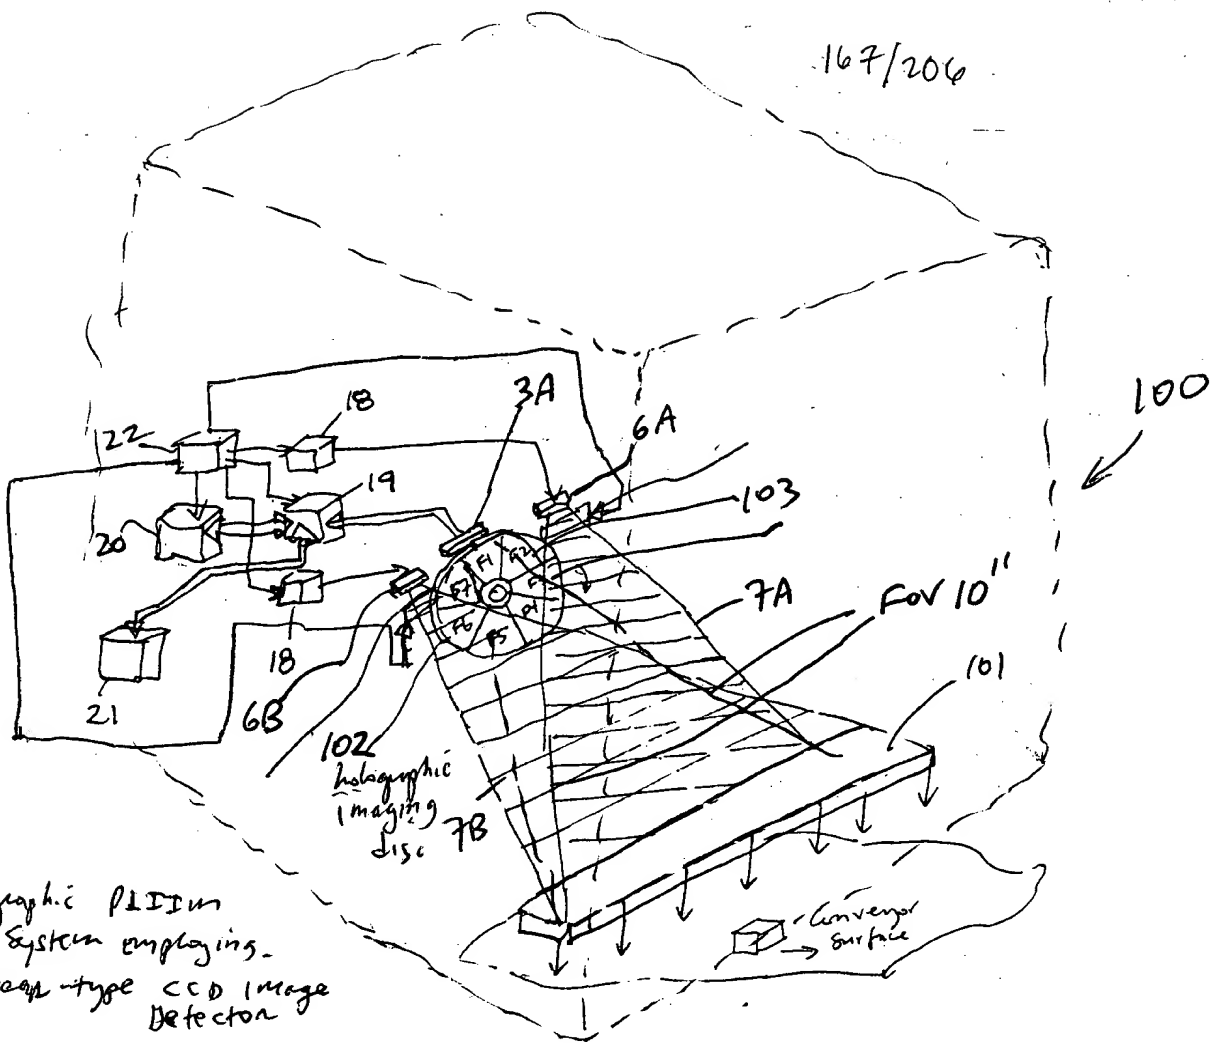 167/206
100
3A
18
6A
22
19
103
20
7A
FOV 10"
101
F1
F2
F7
F6
F5
18
21
6B
102
holographic
imaging
disc
7B
Conveyor
Surface
graphic PLIIM
System employing
-type CCD Image
Detector